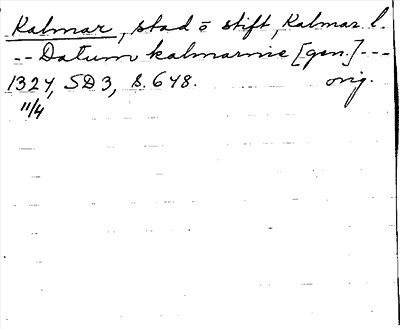 Kalmar, stad o stift, Kalmar l.
-- Datum kalmarnie [gen.] ---
1327, SD 3, s. 648. orig.
11/4